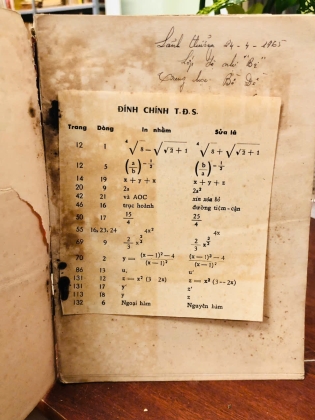 24-4-1965
ĐÍNH CHÍNH T.Đ.S.
Trang Dòng In nhầm Sửa là
12 1 ⁴√8 − √(√3 + 1) ⁴√8 + √(√3 + 1)
12 5 (a/b)^(−1/3) (b/a)^(−1/3)
14 19 x + y + x x + y + z
20 9 2a 2a²
42 21 và AOC
46 16 trục hoành đường tiệm-cận
50 17 15/4 25/4
55 16, 23, 24 4x² 4x
69 9 2/3 x² 2/3 x²
70 2 y = ((x − 1)² − 4)/(x − 1)² ((x − 1)² − 4)/(x − 1)²
86 13 u, u'
131 12 x = x² (3 - 2x) x = x² (3 - 2x)
131 17 y' z'
113 18 y z
132 6 Ngoại hàm Nguyên hàm